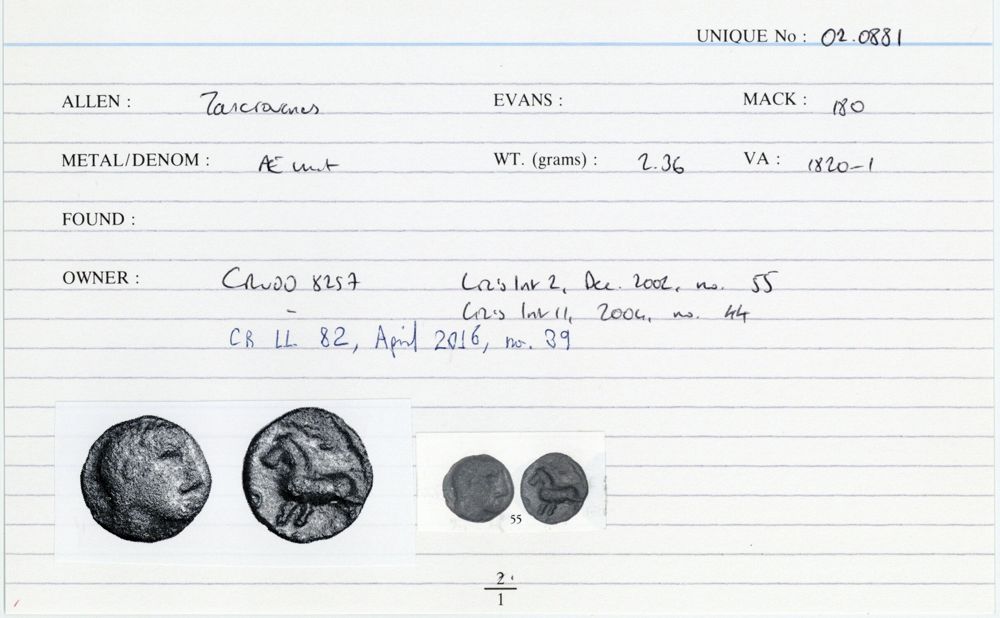 UNIQUE No : 02.0881
ALLEN : Tasciovanus EVANS : MACK : 180
METAL/DENOM : Æ unit WT. (grams) : 2.36 VA : 1820-1
FOUND :
OWNER : 8257 2, Dec. 2002, no. 55
- 11, 2004, no. 44
CR LL 82, April 2016, no. 39
55
2
1